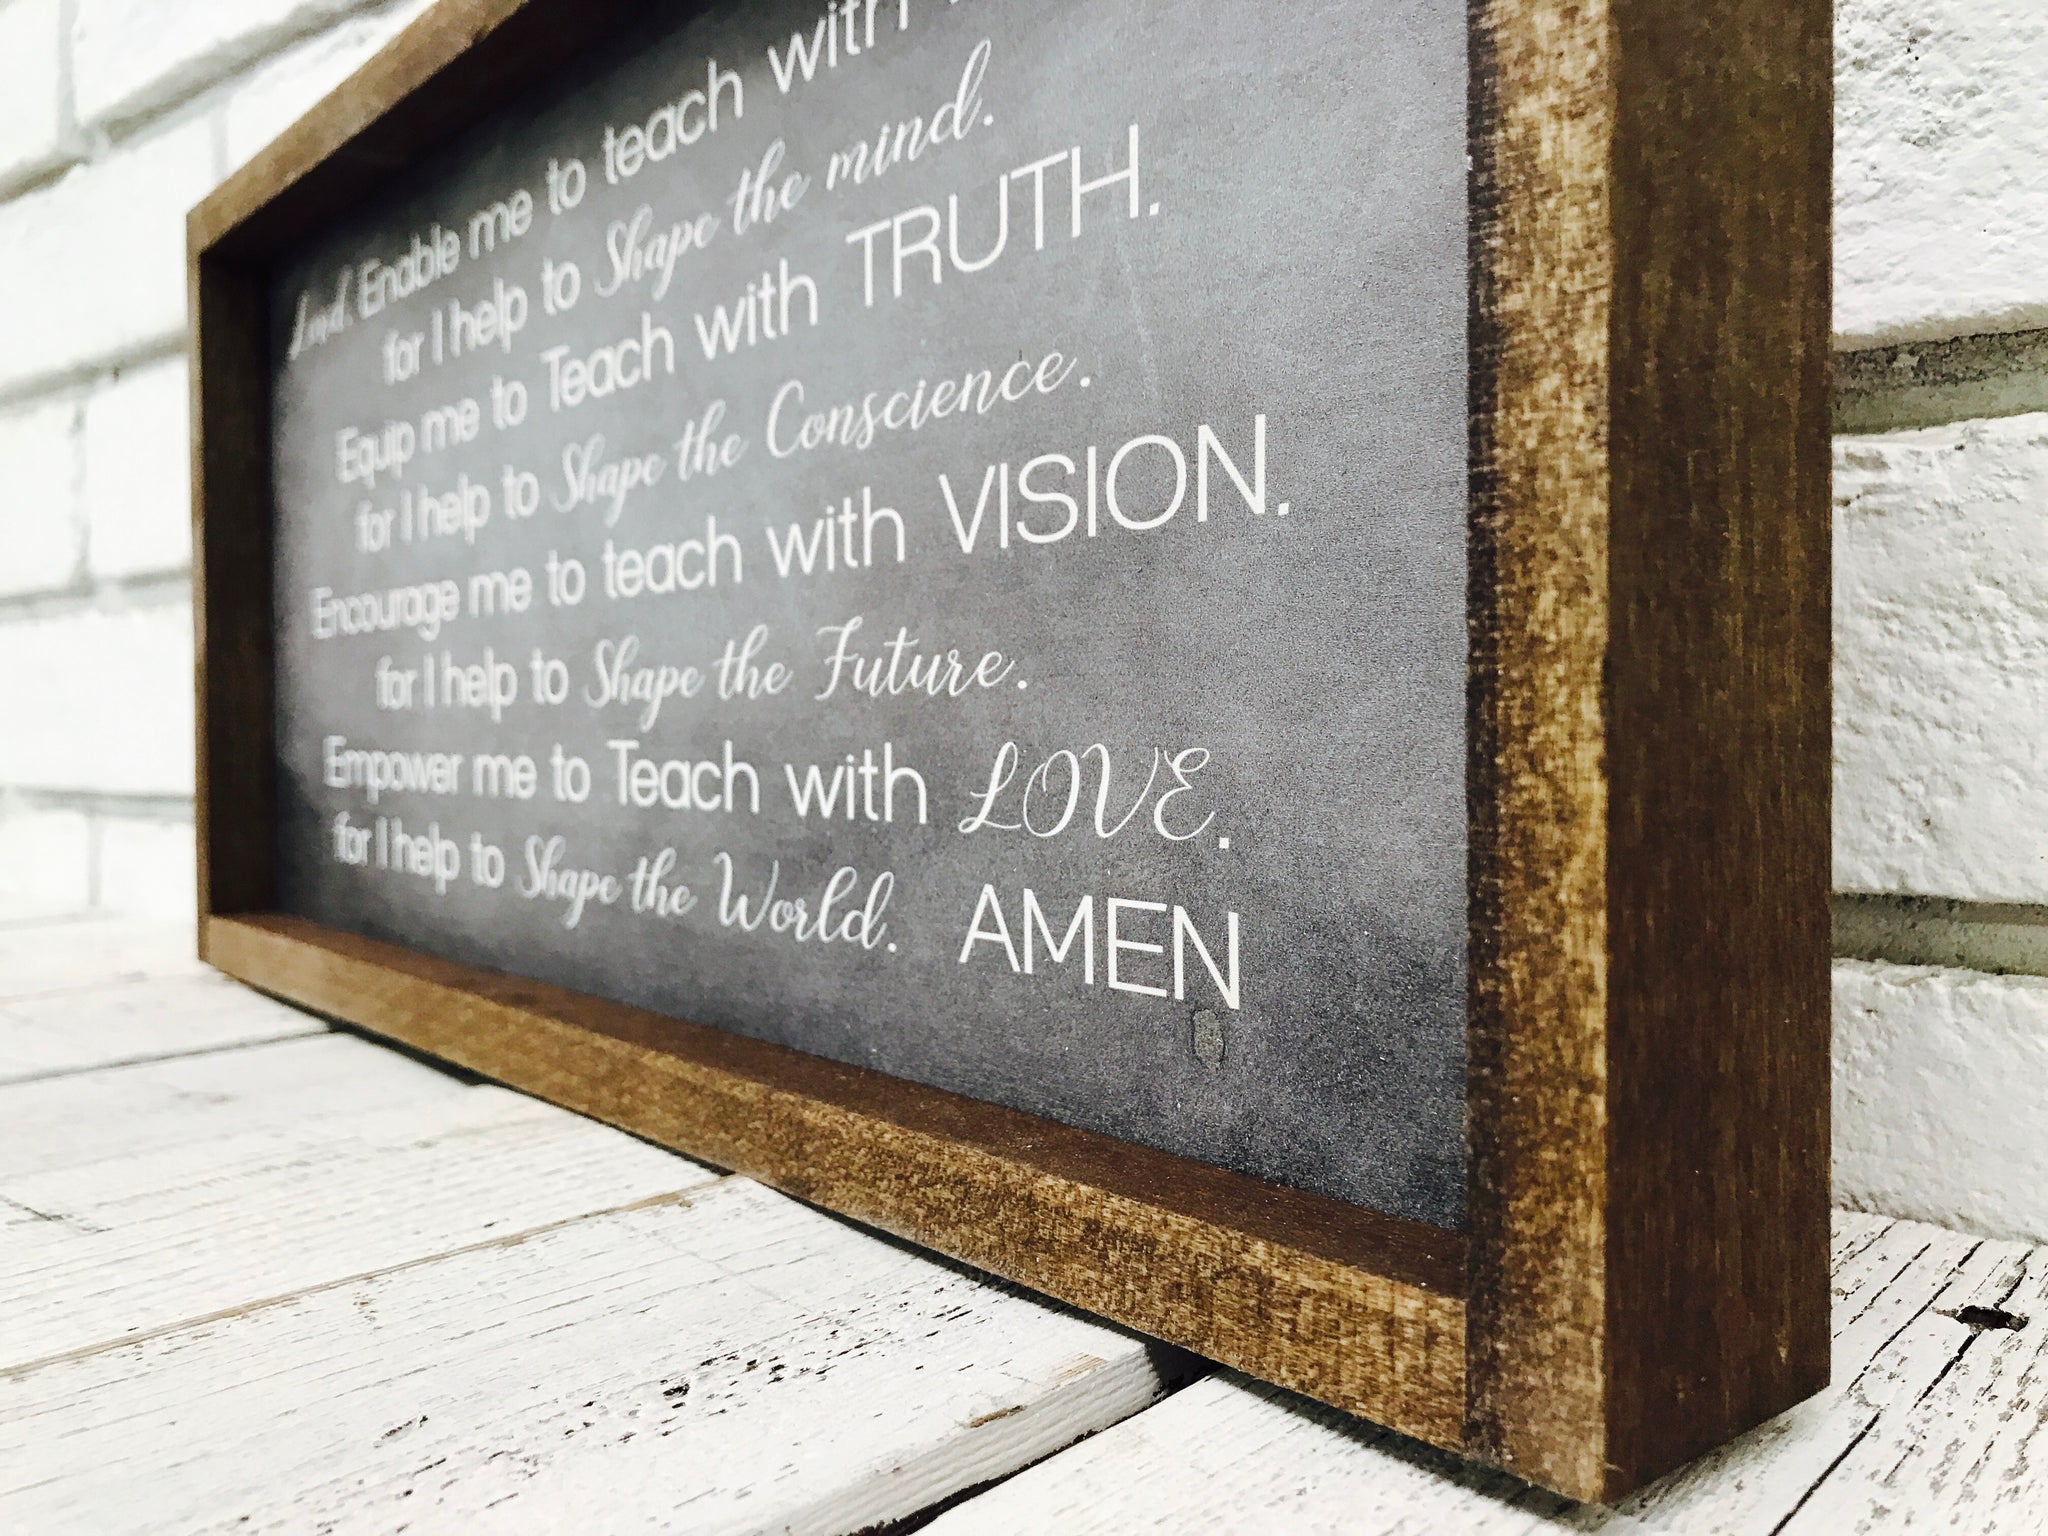 Lord, Enable me to teach with
for I help to Shape the mind.
Equip me to Teach with TRUTH.
for I help to Shape the Conscience.
Encourage me to teach with VISION.
for I help to Shape the Future.
Empower me to Teach with LOVE.
for I help to Shape the World. AMEN